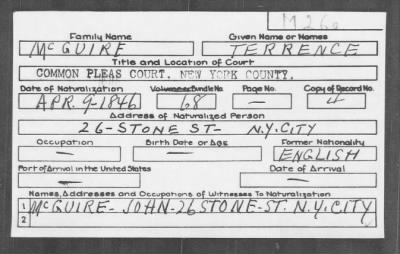 M 260
Family Name Given Name or Names
McGUIRE TERRENCE
Title and Location of Court
COMMON PLEAS COURT, NEW YORK COUNTY.
Date of Naturalization Volume or Bundle No. Page No. Copy of Record No.
APR. 9-1846 68 — 4
Address of Naturalized Person
26-STONE ST- N.Y.CITY
Occupation Birth Date or Age Former Nationality
— — ENGLISH
Port of Arrival in the United States Date of Arrival
— —
Names, Addresses and Occupations of Witnesses To Naturalization
1 McGUIRE- JOHN-26 STONE-ST. N.Y.CITY
2